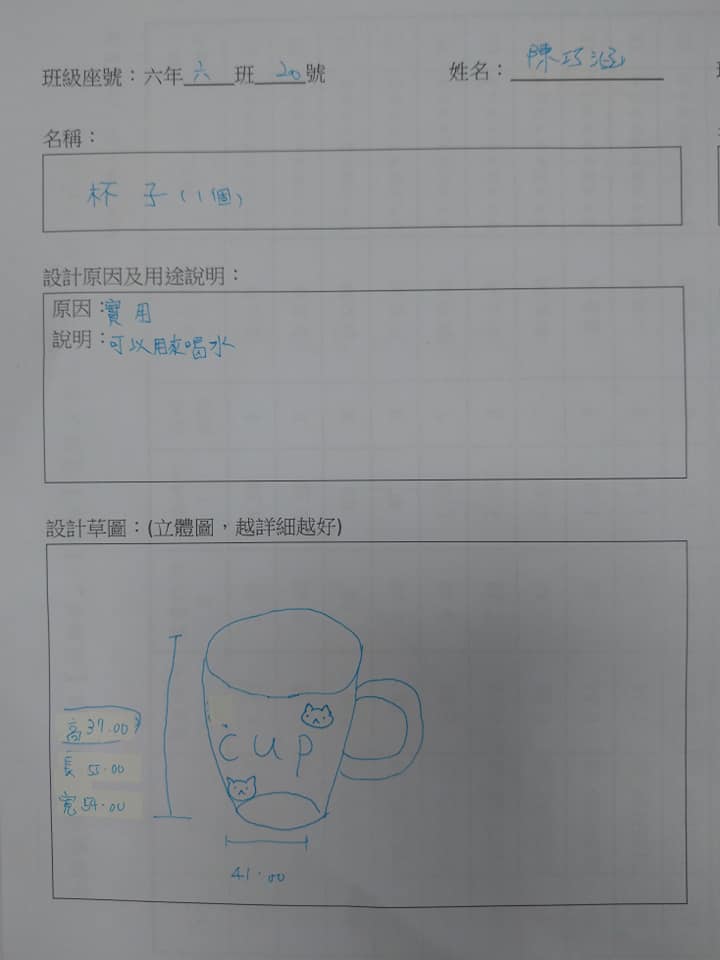 班級座號：六年六班20號 姓名：陳巧涵
名稱：
杯子(1個)
設計原因及用途說明：
原因：實用
說明：可以用來喝水
設計草圖：(立體圖，越詳細越好)
cup
高37.00
長55.00
寬54.00
41.00